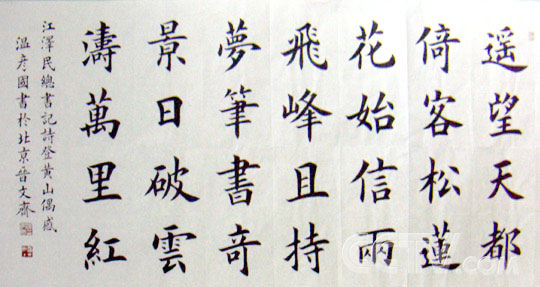 遥望天都
倚客松蓮
花始信兩
飛峰且持
夢筆書奇
景日破雲
濤萬里紅
江澤民總書記詩登黄山偶感
温彦國書於北京晉文齋